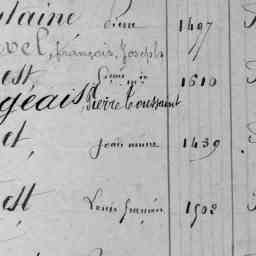 laine Pierre 1497
vel, françois, Joseph
est 1610
geais, Pierre Toussaint
et, Jean marie 1439
est Louis françois 1502